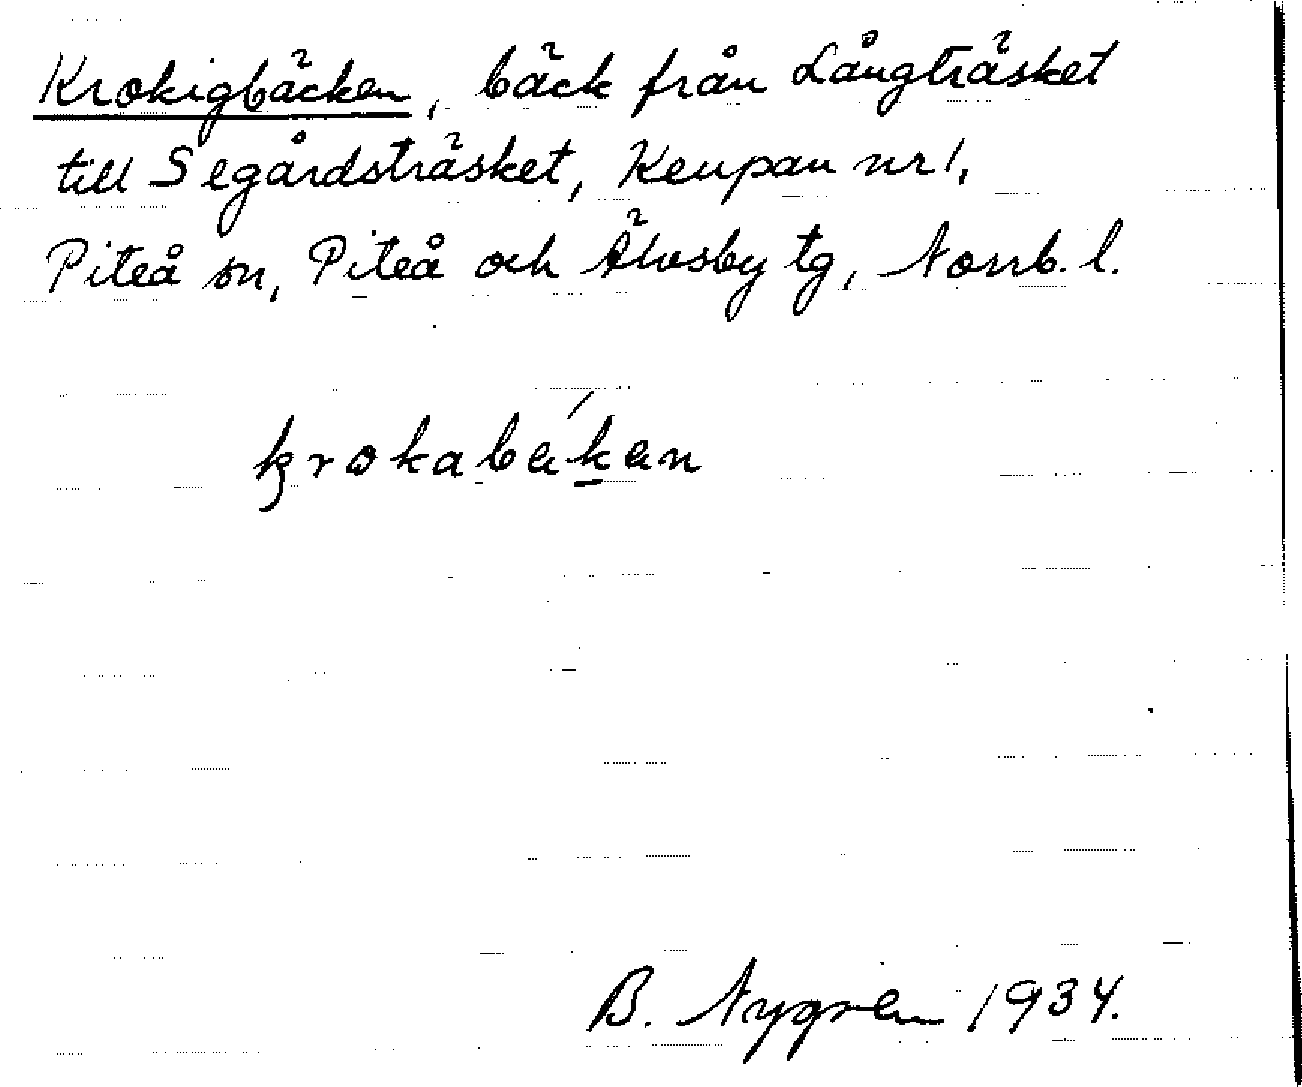 Krokigbäcken, bäck från Långträsket
till Segårdsträsket, Keupan nr 1,
Piteå sn, Piteå och Älvsby tg, Norrb. l.
krokabäkän
B. Nygren 1934.